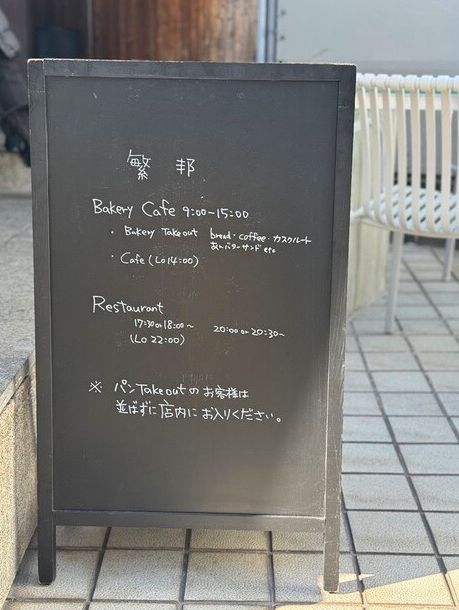 繁 邦
Bakery Cafe 9:00-15:00
・ Bakery Takeout bread・coffee・カスクルート
あんバターサンド etc
・ Cafe (Lo 14:00)
Restaurant
17:30 or 18:00~ 20:00 or 20:30~
(Lo 22:00)
※ パンTakeoutのお客様は
並ばずに店内にお入りください。